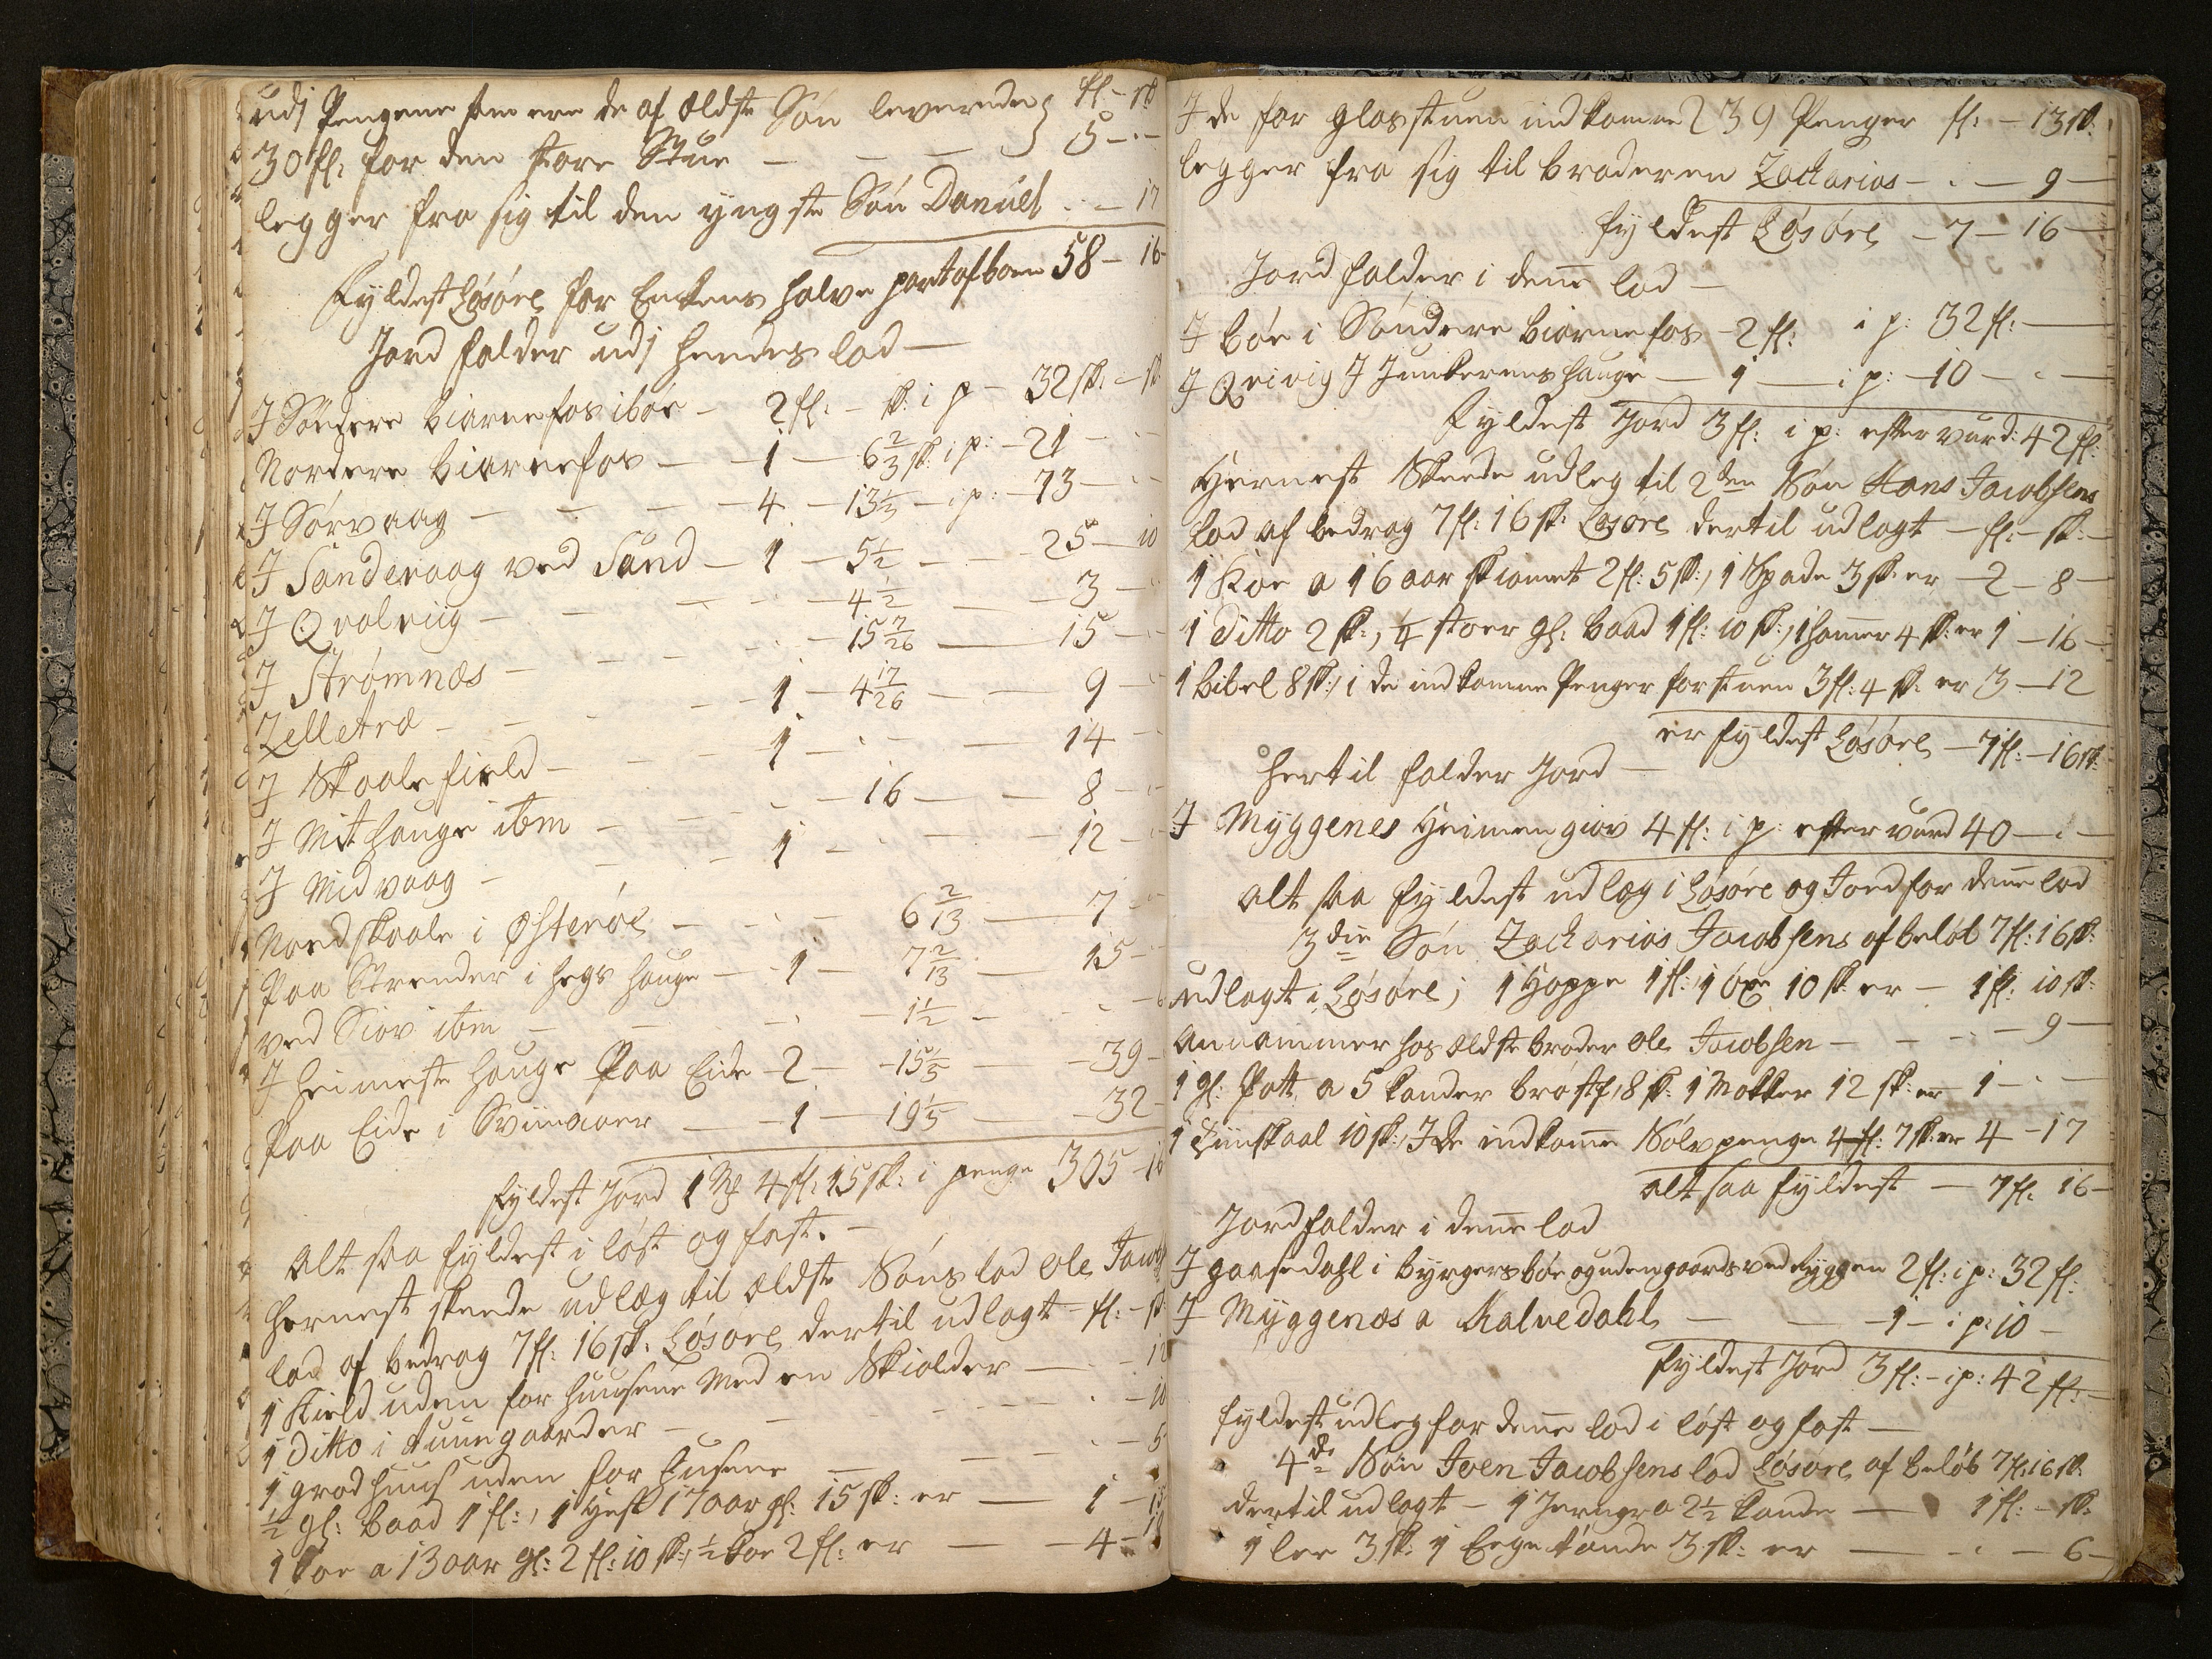 udj Pengene som ere de af ældste Søn leverede } fl: - sk
30 fl: for den store Stue - - - } 5 - -
legger fra sig til den yngste Søn Daniel - - 17
Fyldest Løsøre for Enkens halve part af boen 58 - 16 -
Jord falder udj hendes lod -
J Søndere biørnefos i bøe - 2 fl: - sk: i p - 32 fl: - sk
Nordere biørnefos - - 1 - 6 2/3 sk: i p: - 21 - -
J Sørvaag - - - - 4 - 13 1/3 - i p: - 73 - -
J Sandevaag ved Sand - 1 - 5 1/2 - - 25 - 10
J Qvalviig - - - - 4 1/2 - 3 -
J Strømnæs - - - - 15 7/26 - 15 -
Zelletræ - - - - 1 - 4 17/26 - 9 -
J Skaalefield - - - 1 - - - 14 -
J Mithauge ibm - - - - 16 - - 8 -
J Midvaag - - - 1 - - - 12 -
Nordskaale i Østerøe - - - 6 2/13 - 7 -
Paa Strender i hegs hauge - - 1 - 7 2/13 - 15 -
ved Siov ibm - - - - 1 1/2 - - -
J heimeste hauge Paa Eide - 2 - 15 1/5 - 39 -
Paa Eide i Sviinaaer - - 1 - 19 1/5 - 32 -
Fyldest Jord 1 M 4 fl: 15 sk: i penge 305 - 16
Alt saa fyldest i løst og fast. -
Hernest skeede udlæg til ældste Søns lod Ole Jacob
lod af bedrag 7 fl: 16 sk: Løsøre dertil udlagt - fl: - sk:
1 Kield uden for huusene Med en Skiolder - - 10
1 Ditto i tuungaarder - - - - 10
1 grodhuus uden for husene - - - 5
1/2 gl: baad 1 fl:, 1 Hest 17 aar gl: 15 sk: er - 1 - 15
1 koe a 13 aar gl: 2 fl: 10 sk:, 1/2 koe 2 fl: er - - 4 -
J de for glasstuen indkomne 239 Penger fl: - 13 sk:
legger fra sig til broderen Zacharias - - - 9 -
fyldest Løsøre - 7 - 16 -
Jord falder i denne lod -
J bøe i Søndere biørnefos - 2 fl: i p: 32 fl: -
J Qvivig J Junkerens hauge - 1 - i p: - 10 - - -
Fyldest Jord 3 fl: i p: efter vurd: 42 fl:
Hernest Skeede udleg til 2den Søn Hans Jacobsens
lod af bedrag 7 fl: 16 sk: Løsøre dertil udlagt - fl: - sk: -
1 Koe a 16 aar skiønnet 2 fl: 5 sk:, 1 Spade 3 sk: er - 2 - 8 -
1 Ditto 2 sk:, 1/4 stoer gl: baad 1 fl: 10 sk:, 1 hamer 4 sk: er 1 - 16 -
1 bibel 8 sk:, i de indkomne Penger for stuen 3 fl: 4 sk: er 3 - 12
er fyldest Løsøre - 7 fl: - 16 sk:
hertil falder Jord -
J Myggenes Heimengiov 4 fl: i p: efter vurd 40 - - -
alt saa fyldest udlæg i Løsøre og Jord for denne lod
3die Søn Zacharias Jacobsens af beløb 7 fl: 16 sk:
udlagt i Løsøre; 1 Hoppe 1 fl: 1 øxe 10 sk: er - 1 fl: 10 sk:
annammer hos ældste broder Ole Jacobsen - - - 9 -
1 gl: Patt a 5 kander brøstf: 8 sk: 1 Mokker 12 sk: er 1 - - -
1 Tiinskaal 10 sk:, J de indkomne Sølvpenge 4 fl: 7 sk: er 4 - 17
alt saa fyldest - 7 fl: 16 -
Jord falder i denne lod
J gaasedahl i byrgersbøe og uden gaards ved Ryggen 2 fl: i p: 32 fl:
J Myggenæs a Kalvedahl - - - 1 - i p: 10 -
Fyldest Jord 3 fl: - i p: 42 fl: -
fyldest udleg for denne lod i løst og fast -
4de Søn Joen Jacobsens lod Løsøre af beløb 7 fl: 16 sk:
dertil udlagt - 1 Jerngr a 2 1/2 kande - 1 fl: - sk:
1 lee 3 sk: 1 Eege tønde 3 sk: er - - - 6 -